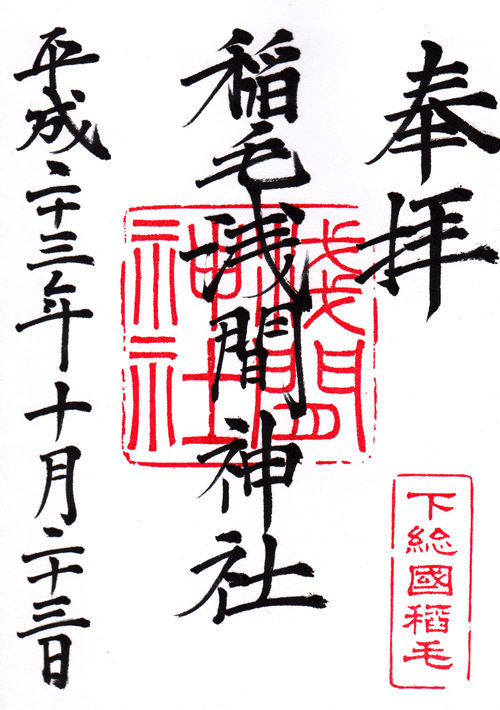 奉拝
下総國稲毛
稲毛浅間神社
浅間
神社
平成二十三年十月二十三日